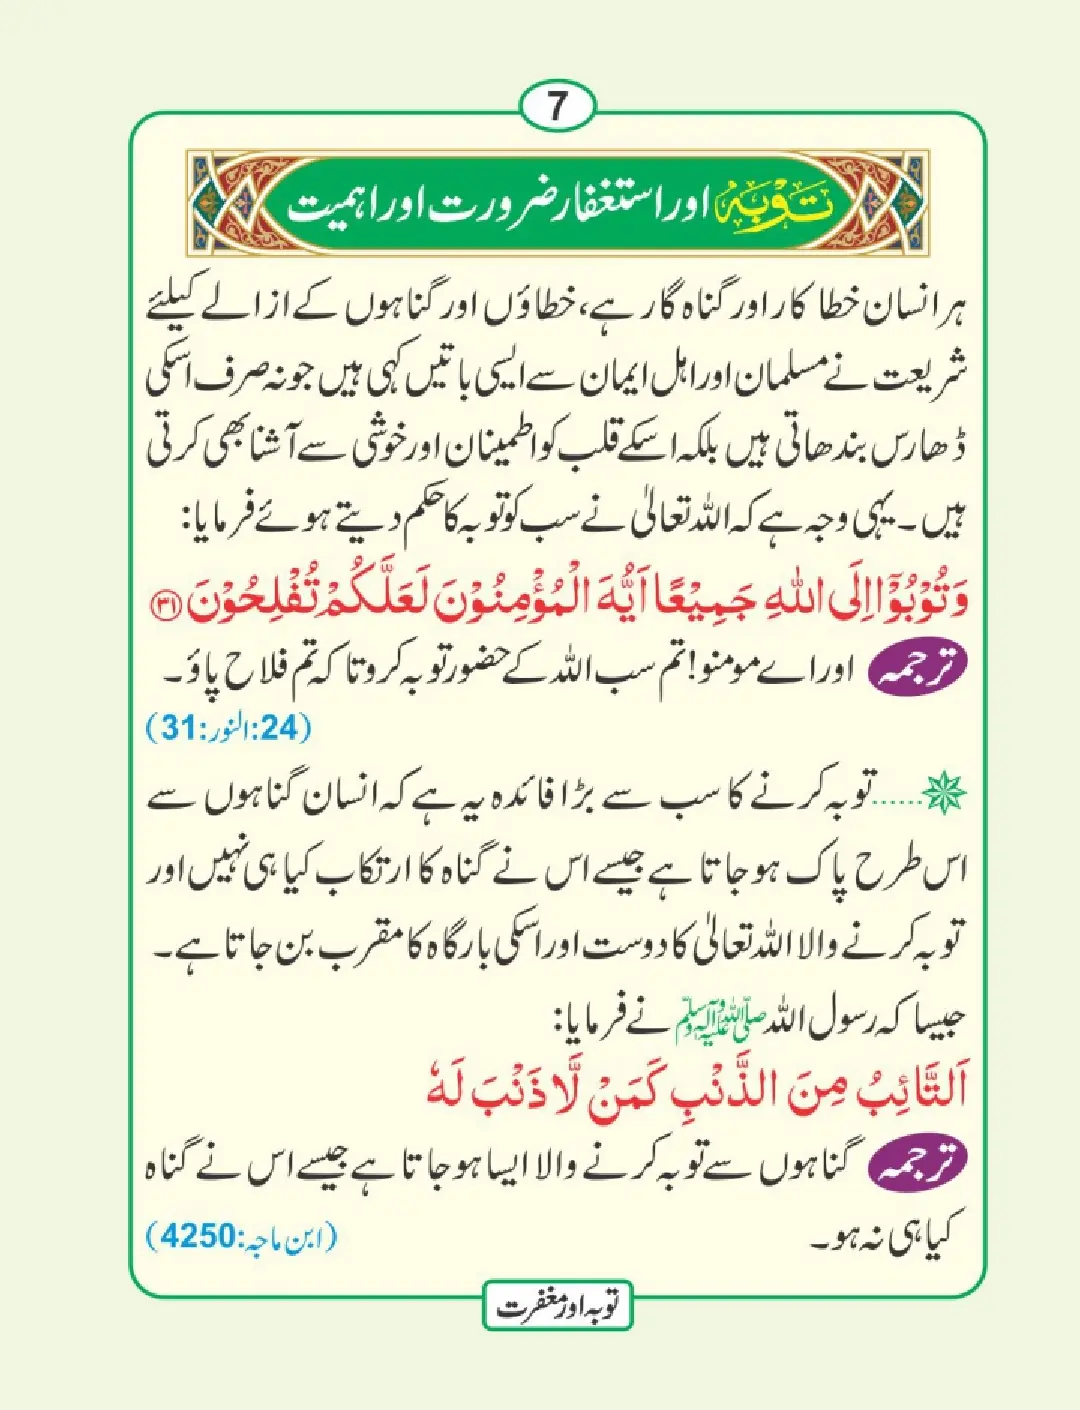 7
توبہ اور استغفار ضرورت اور اہمیت
ہر انسان خطا کار اور گناہ گار ہے، خطاؤں اور گناہوں کے ازالے کیلئے
شریعت نے مسلمان اور اہل ایمان سے ایسی باتیں کہی ہیں جو نہ صرف اسکی
ڈھارس بندھاتی ہیں بلکہ اسکے قلب کو اطمینان اور خوشی سے آشنا بھی کرتی
ہیں۔ یہی وجہ ہے کہ اللہ تعالیٰ نے سب کو توبہ کا حکم دیتے ہوئے فرمایا:
وَتُوْبُوْٓا اِلَى اللّٰهِ جَمِيْعًا اَيُّهَ الْمُؤْمِنُوْنَ لَعَلَّكُمْ تُفْلِحُوْنَ ﴿۳۱﴾
ترجمہ اور اے مومنو! تم سب اللہ کے حضور توبہ کرو تا کہ تم فلاح پاؤ۔
(24:النور:31)
......توبہ کرنے کا سب سے بڑا فائدہ یہ ہے کہ انسان گناہوں سے
اس طرح پاک ہو جاتا ہے جیسے اس نے گناہ کا ارتکاب کیا ہی نہیں اور
توبہ کرنے والا اللہ تعالیٰ کا دوست اور اسکی بارگاہ کا مقرب بن جاتا ہے۔
جیسا کہ رسول اللہ صلی اللہ علیہ وآلہ وسلم نے فرمایا:
اَلتَّائِبُ مِنَ الذَّنْبِ كَمَنْ لَّا ذَنْبَ لَهٗ
ترجمہ گناہوں سے توبہ کرنے والا ایسا ہو جاتا ہے جیسے اس نے گناہ
کیا ہی نہ ہو۔ (ابن ماجہ:4250)
توبہ اور مغفرت